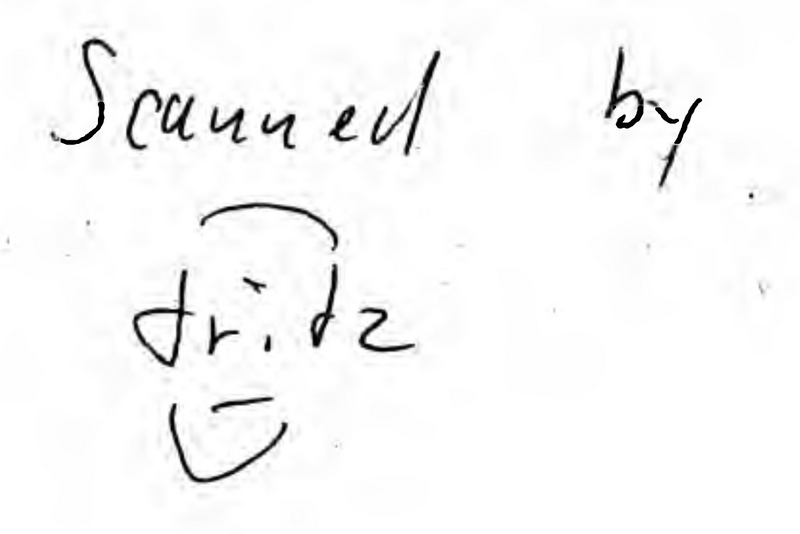 Scanned by
fritz